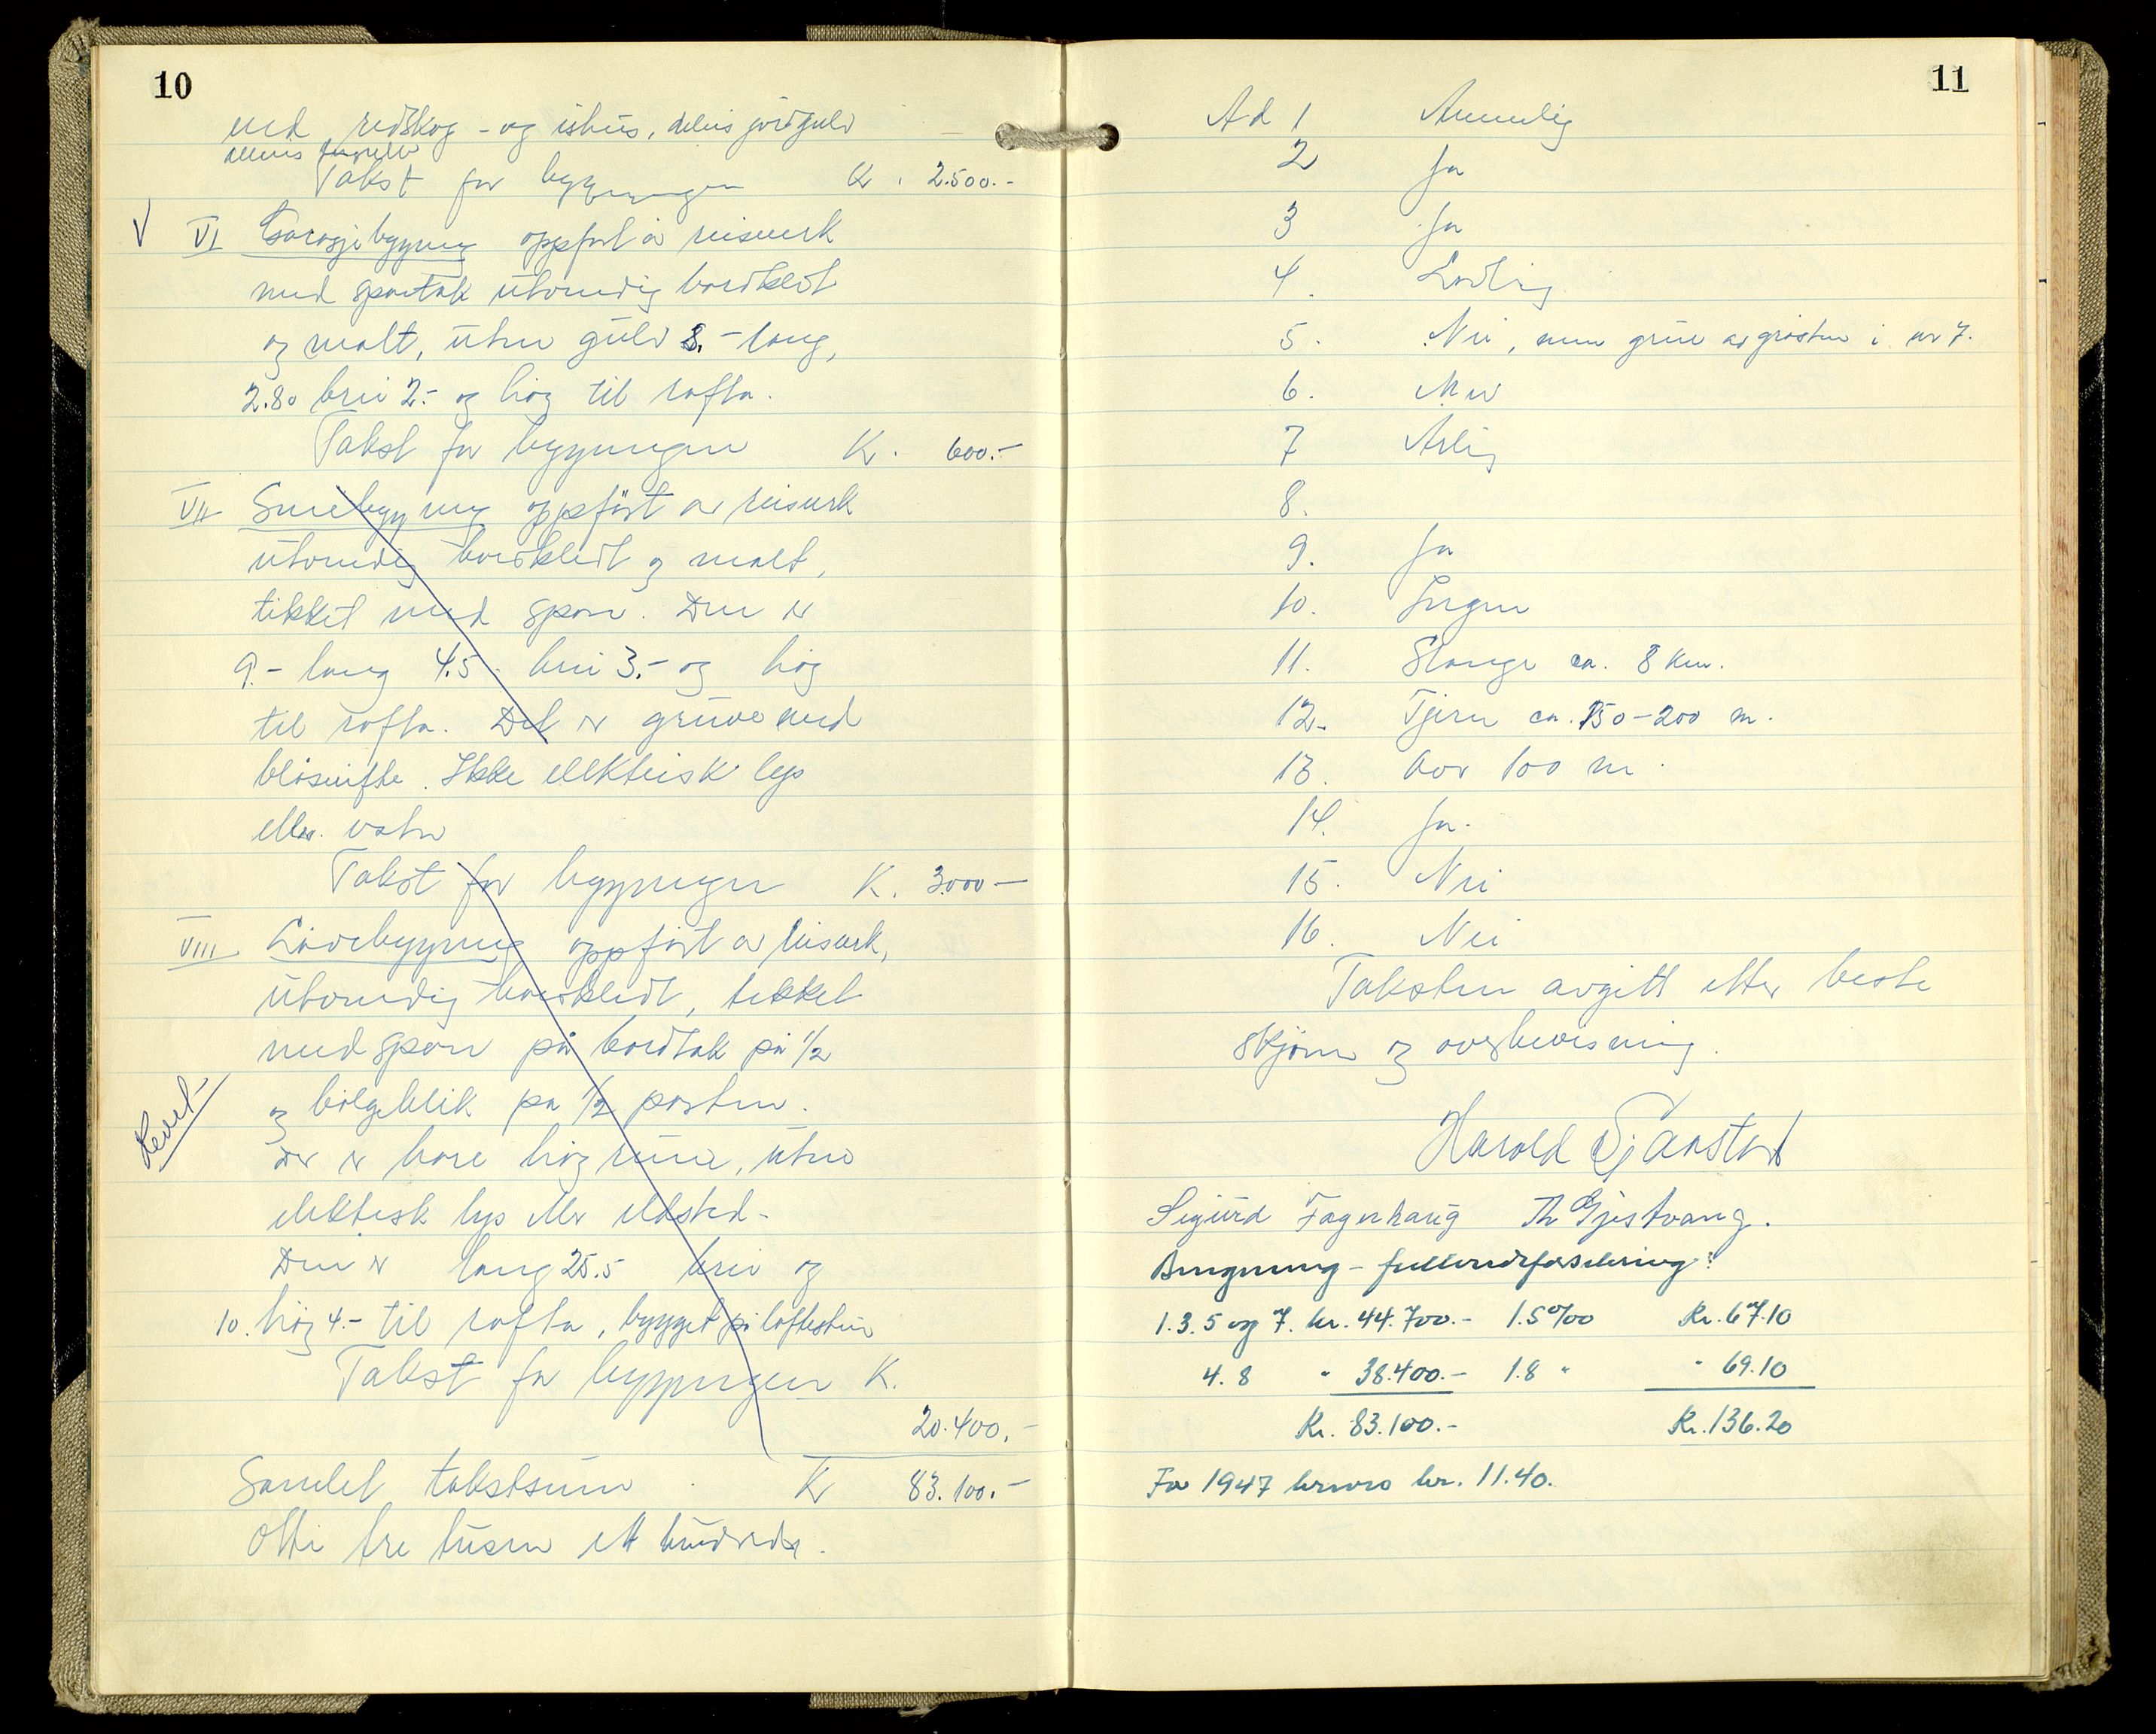 10
med redskog - og ishus, delvis jordgulv
delvis
Takst for bygningen K. 2.500.-
V VI Garasjebygning oppført av reisverk
med spontak utvendig bordkledt
og malt, uten gulv 8.- lang,
2.80 brei 2.- og høg til rafta.
Takst for bygningen Kr. 600.-
VII Smiebygning oppført av reisverk
utvendig bordkledt og malt,
tekket med spon. Den er
9.- lang 4.5 brei 3.- og høg
til rafta. Det er gruve med
blåsevifte. Ikke elektrisk lys
eller vatn
Takst for bygningen K. 3.000 -
VIII Låvebygning oppført av reisverk,
utvendig bordkledt, tekket
med spon på bordtak på 1/2
og bølgeblik på 1/2 parten.
Der er bare høgrum, uten
elektrisk lys eller eldsted -
Den er lang 25.5 brei og
10. høg 4.- til rafta, bygget på
Takst for bygningen K.
20.400.-
Revet
Samlet takstsum Kr 83.100.-
Otti tre tusen ett hundrede.
11
Ad 1 Anmelig
2 Ja
3 Ja
4. Lovlig
5. Nei, men grue av gråsten i nr 7.
6. Mur
7 Årlig
8.
9. Ja
10. Ingen
11. Stange ca. 8 km.
12. Tjern ca. 150-200 m.
13. Over 100 m.
14. Ja.
15. Nei
16. Nei
Taksten avgitt etter beste
skjønn og overbevisning.
Harald
Sigurd Fagerhaug Th Gjestvang.
Beregning - fullverdiforsikring:
1.3.5 og 7. kr. 44.700.- 1.5 0/00 Kr. 67.10
4. 8 " 38.400.- 1.8 " " 69.10
Kr. 83.100.- Kr. 136.20
For 1947 kreves kr. 11.40.